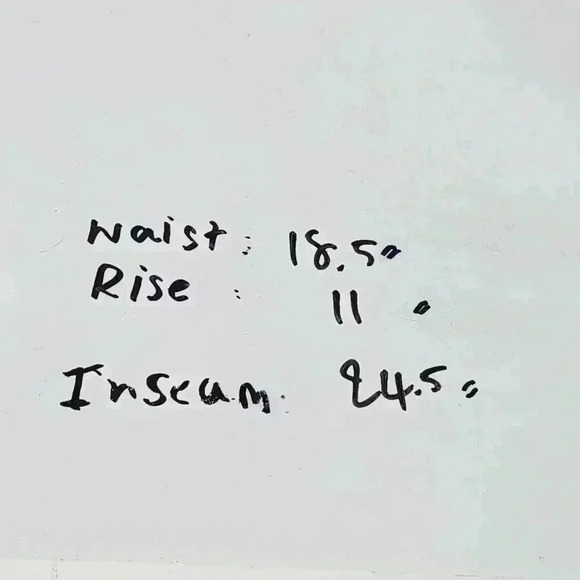 Waist: 18.5"
Rise : 11 "
Inseam: 24.5"